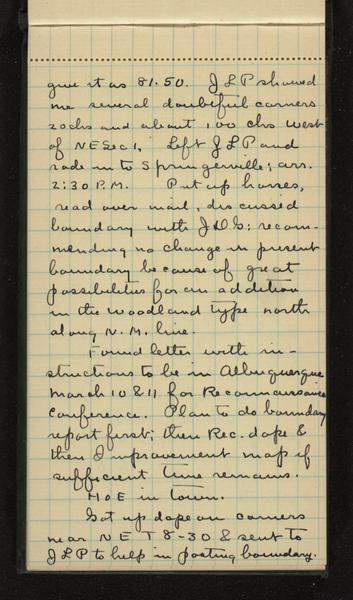 give it as 81.50. JLP showed
me several doubtful corners
20chs and about 100 chs west
of NE Sec 1. Left JLP and
rode in to Springerville; arr.
2:30 P.M. Put up horses,
read over mail, discussed
boundary with JDG; recom-
mending no change in present
boundary because of great
possibilities for an addition
in the woodland type north
along N.M. line.
Found letter with in-
structions to be in Albuquerque
March 10 & 11 for Reconnaissance
Conference. Plan to do boundary
report first; then Rec. dope &
then Improvement map if
sufficient time remains.
HoE in town.
Got up dope on corners
near NE T8-30 & sent to
JLP to help in posting boundary.